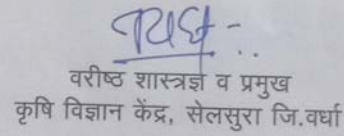 वरीष्ठ शास्त्रज्ञ व प्रमुख
कृषि विज्ञान केंद्र, सेलसुरा जि.वर्धा